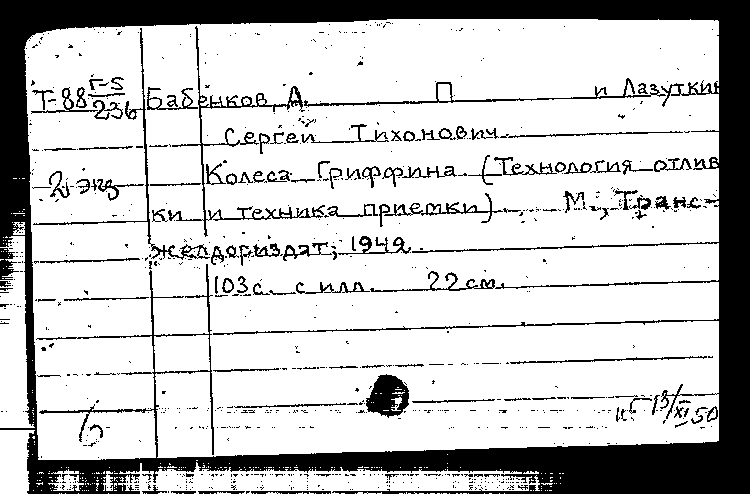 Т-88 Г-5/236 Бабенков, А. П и Лазуткин
Сергей Тихонович.
2 экз Колеса Гриффина (Технология отлив
ки и техника приемки). М., Транс-
желдориздат, 1949.
103 с. с илл. 22 см.
6 13/XI 50